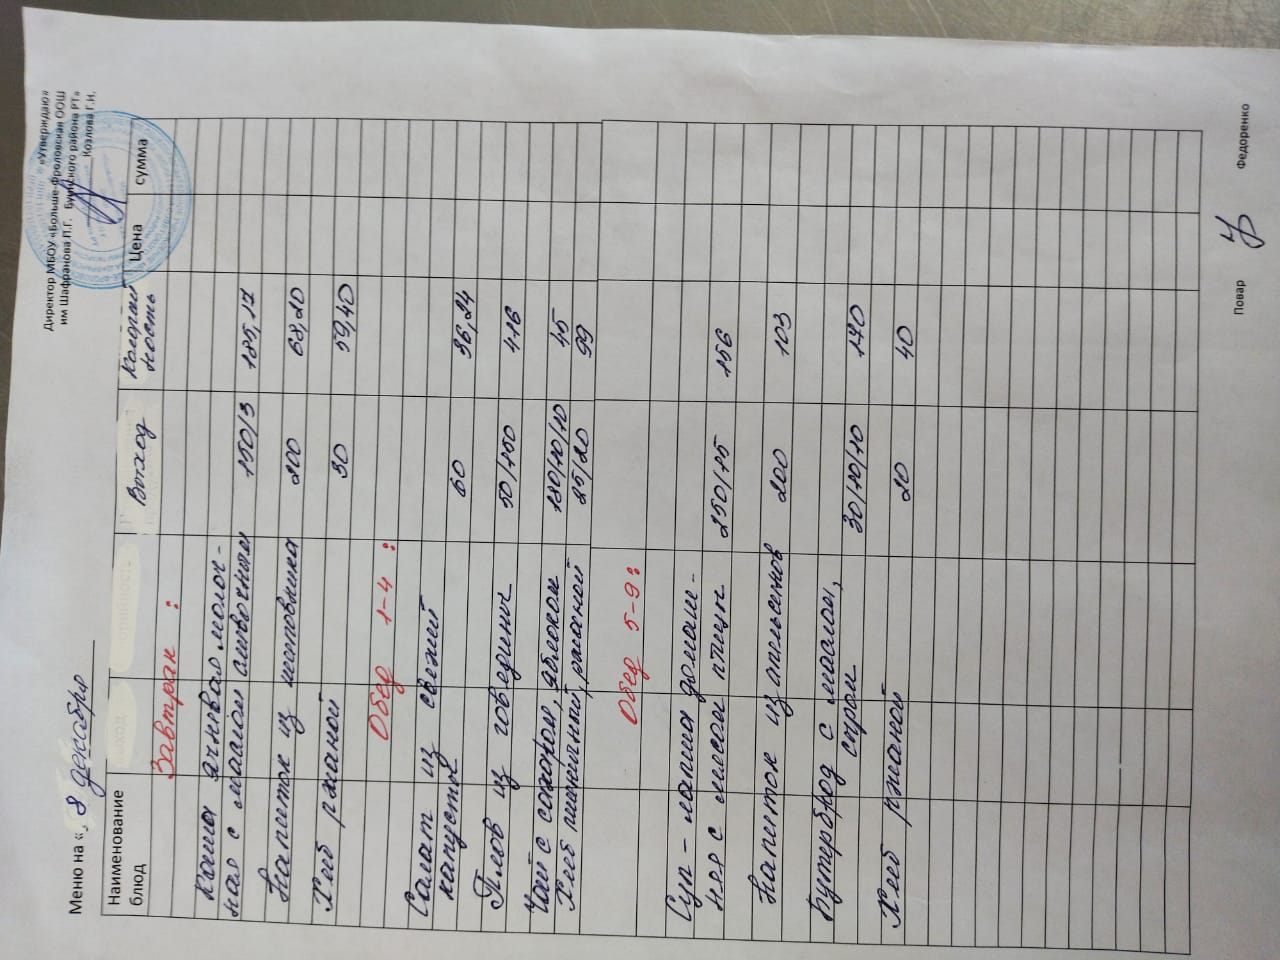 «Утверждаю»
Директор МБОУ «Больше-Фроловская ООШ
им Шафранова П.Г. Буинского района РТ»
Козлова Г.Н.
Меню на «, 8 декабря
Наименование блюд Выход Калорий ность Цена сумма
Завтрак :
Каша ячневая молоч-
ная с маслом сливочным 150/3 185,17
Напиток из шиповника 200 68,20
Хлеб ржаной 30 59,40
Обед 1-4 :
Салат из свежей
капусты 60 36,24
Плов из говядины 50/150 416
Чай с сахаром, яблоком 180/10/10 45
Хлеб пшеничный, ржаной 25/20 99
Обед 5-9:
Суп - лапша домаш-
няя с мясом птицы 250/15 156
Напиток из апельсинов 200 103
Бутерброд с маслом,
сыром 30/10/10 140
Хлеб ржаной 20 40
Повар Федоренко